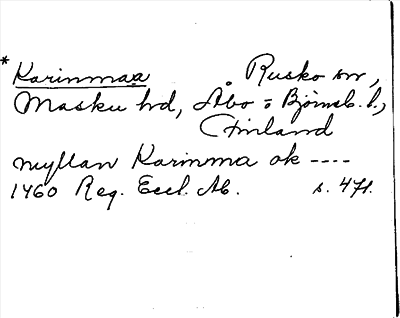 * Karinmaa Rusko sn,
Masku hd, Åbo o Björneb. l,
Finland
myllan Karinma ok ----
1460 Reg. Eccl. Ab. s. 471.